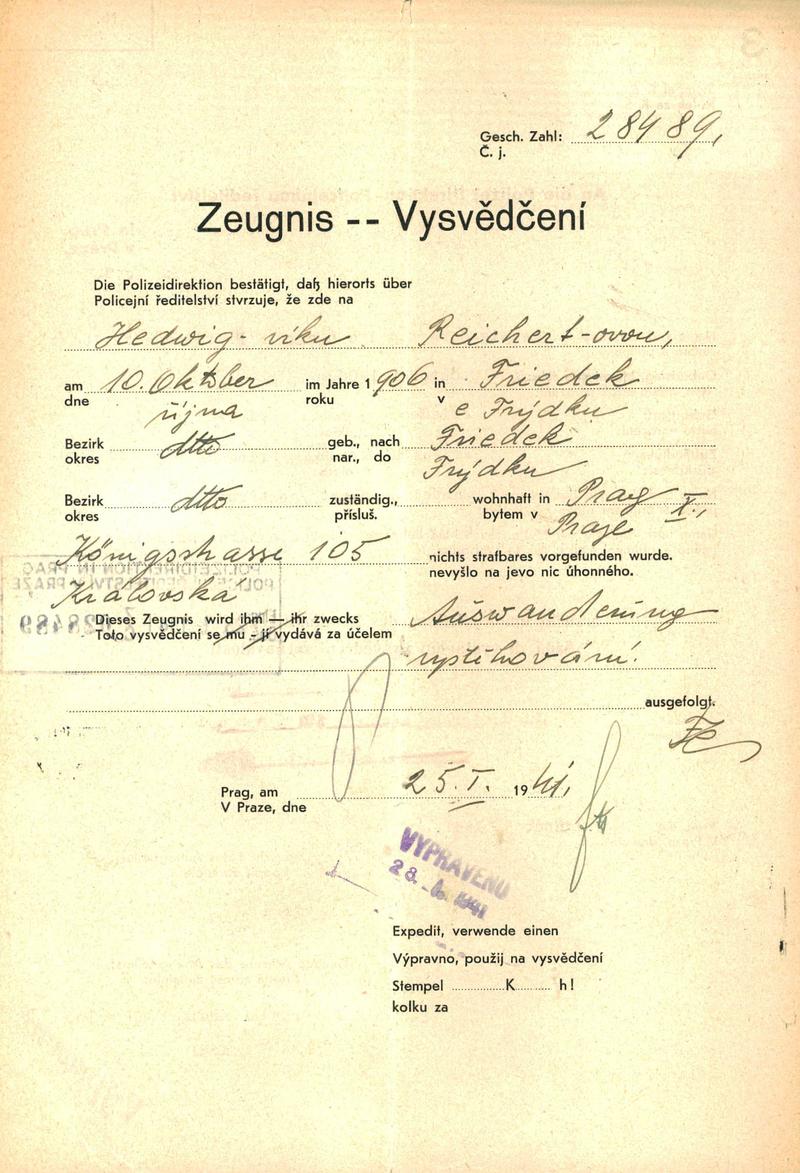 Gesch. Zahl: 28489,
Č. j.
Zeugnis -- Vysvědčení
Die Polizeidirektion bestätigt, daß hierorts über
Policejní ředitelství stvrzuje, že zde na
Hedwig- viku Reichert-ovou,
am 10. Oktober im Jahre 1906 in Friedek
dne října roku v Frýdku
Bezirk dtto geb., nach Friedek
okres nar., do Frýdku
Bezirk dtto zuständig., wohnhaft in Prag X.,
okres přísluš. bytem v Praze
Königstrasse 105 nichts strafbares vorgefunden wurde.
nevyšlo na jevo nic úhonného.
Královská
Dieses Zeugnis wird ihm — ihr zwecks Auswanderung
Toto vysvědčení se mu - jí vydává za účelem
vystěhování.
ausgefolgt.
Prag, am 25. I. 1941,
V Praze, dne
VYPRAVENO
28. 1941
Expedit, verwende einen
Výpravno, použij na vysvědčení
Stempel K h!
kolku za